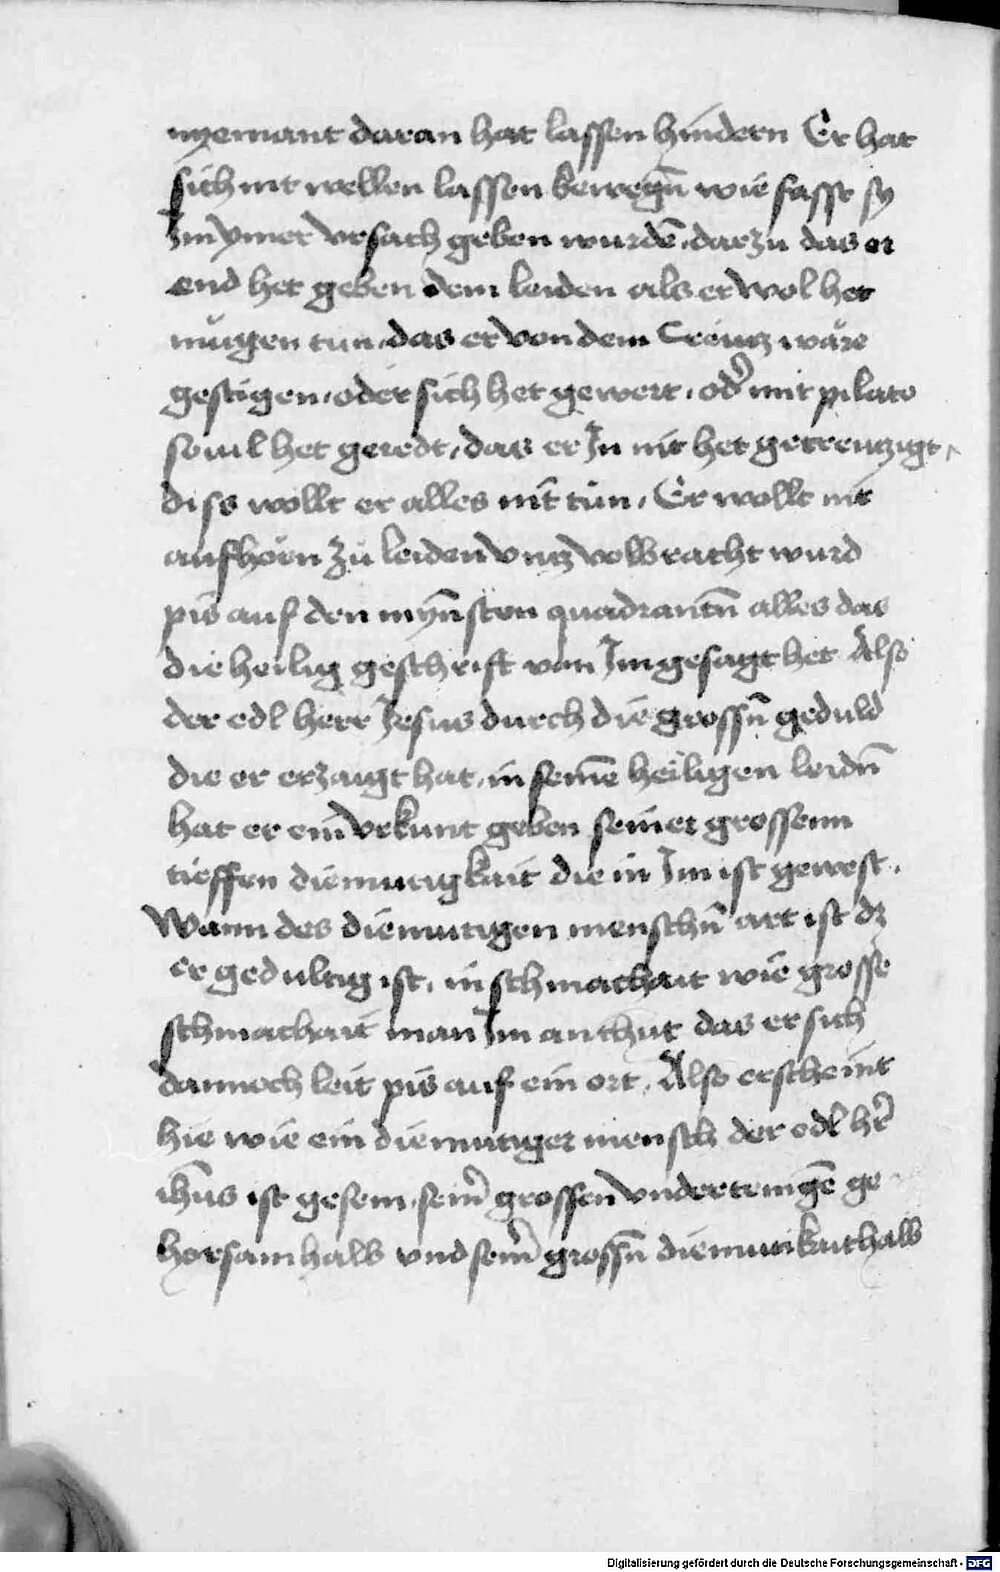 nyemant daran hat lassen hindern Er hat
sich nit wellen lassen bewegñ wie fasst sy
Im ymer vrsach geben wurdẽ, darzu das er
end het geben dem leiden als er wol het
mügen tun, das er von dem Creutz wäre
gestigen, oder sich het gewert, od̾ mit pilato
souil het geredt, das er In nit het gecreutzigt,
diss wollt er alles nit tůn, Er wollt nit
aufhörn zů leiden vntz volbracht wurd
pis auf den mÿnsten quadrantñ alles das
die heilig geschrift von Im gesagt het Also
der edl herr Jesus durch die grossñ geduld
die er erzaigt hat, in seinẽ heiligen leidñ
hat er ein vrkunt geben seiner grossenn
tieffen diemutigkait die in Im ist gewest.
Wann des diemutigen menschñ art ist dz
er gedultig ist, in schmachait wie grosse
schmachait man Im anthut das er sich
dannoch leit pis auf ein ort, Also erscheint
hie wie ein diemutiger mensch der edl hr̄
ihūs ist gesein, sein̾ grossen vndertenigẽ ge
horsam halb vnd sein̾ grossñ diemutikait halb
Digitalisierung gefördert durch die Deutsche Forschungsgemeinschaft - DFG